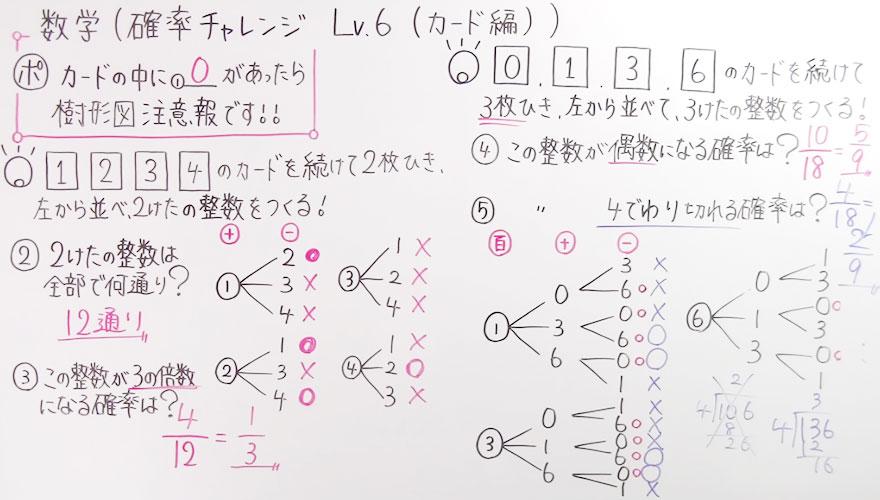 数学(確率チャレンジ Lv.6 (カード編))
ポ カードの中に① 0 があったら
樹形図注意報です!!
1 2 3 4 のカードを続けて2枚ひき、
左から並べ、2けたの整数をつくる!
② 2けたの整数は
全部で何通り?
12通り
③ この整数が3の倍数
になる確率は?
4/12 = 1/3
+ −
① 2 ○
3 ×
4 ×
② 1 ○
3 ×
4 ○
③ 1 ×
2 ×
4 ×
④ 1 ×
2 ○
3 ×
0 . 1 . 3 . 6 のカードを続けて
3枚ひき、左から並べて、3けたの整数をつくる!
④ この整数が偶数になる確率は? 10/18 = 5/9
⑤ 〃 4でわり切れる確率は? 4/18 = 2/9
百 + −
① 0 3 ×
6 ○ ×
3 0 ○ ×
6 ○ ○
6 0 ○ ○
1 ×
③ 0 1 ×
6 ○ ×
1 0 ○ ×
6 ○ ○
6 0 ○ ○
1 ×
⑥ 0 1
3
1 0 ○
3
3 0 ○
1
2
4 106
8
26
3
4 136
12
16